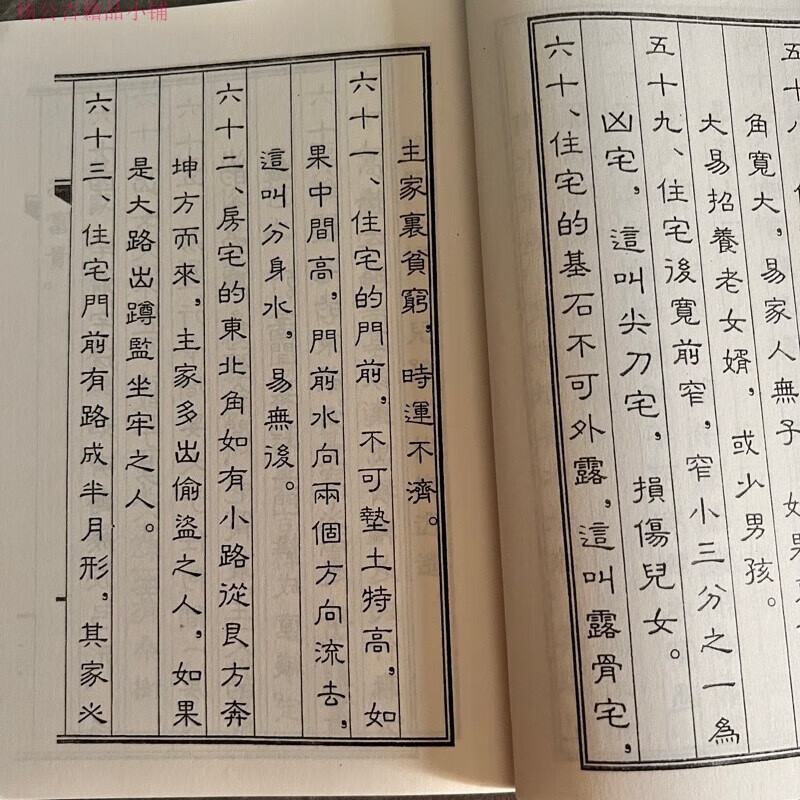 杨公古籍品小铺
五十八、
角寬大，易家人無子，如果
大易招養老女婿，或少男孩。
五十九、住宅後寬前窄，窄小三分之一為
凶宅，這叫尖刀宅，損傷兒女。
六十、住宅的基石不可外露，這叫露骨宅，
主家裏貧窮，時運不濟。
六十一、住宅的門前，不可墊土特高，如
果中間高，門前水向兩個方向流去，
這叫分身水，易無後。
六十二、房宅的東北角如有小路從艮方奔
坤方而來，主家多出偷盜之人，如果
是大路出蹲監坐牢之人。
六十三、住宅門前有路成半月形，其家必